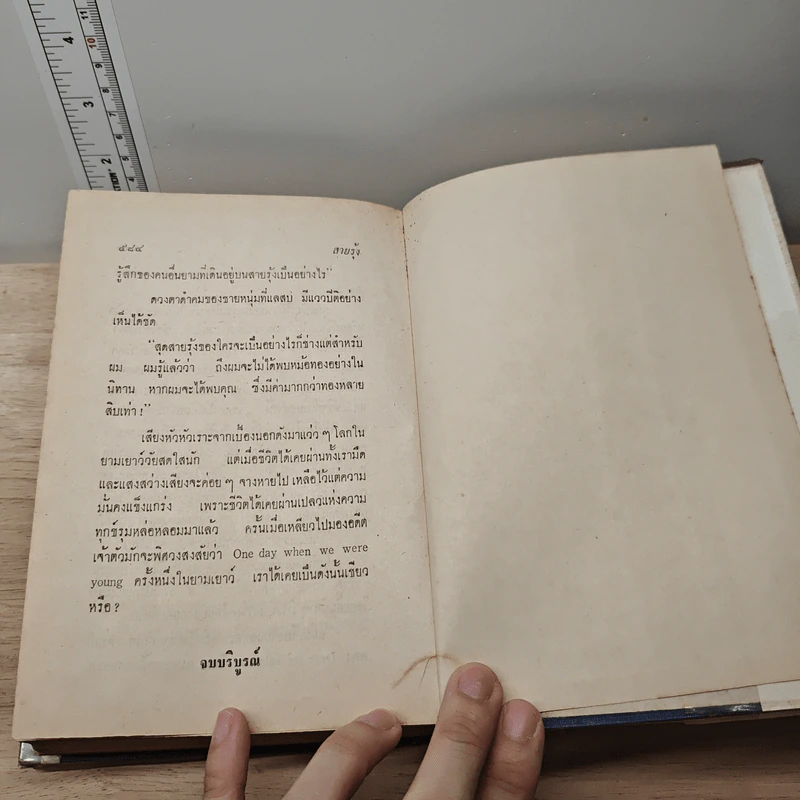 ๕๘๔ สายรุ้ง
รู้สึกของคนอื่นยามที่เดินอยู่บนสายรุ้งเป็นอย่างไร"
ดวงตาดำคมของชายหนุ่มที่แลสบ มีแววปีติอย่าง
เห็นได้ชัด
"สุดสายรุ้งของใครจะเป็นอย่างไรก็ช่างแต่สำหรับ
ผม ผมรู้แล้วว่า ถึงผมจะไม่ได้พบหม้อทองอย่างใน
นิทาน หากผมจะได้พบคุณ ซึ่งมีค่ามากกว่าทองหลาย
สิบเท่า !"
เสียงหัวหัวเราะจากเบื้องนอกดังมาแว่ว ๆ โลกใน
ยามเยาว์วัยสดใสนัก แต่เมื่อชีวิตได้เคยผ่านทั้งเรามืด
และแสงสว่างเสียงจะค่อย ๆ จางหายไป เหลือไว้แต่ความ
มั่นคงแข็งแกร่ง เพราะชีวิตได้เคยผ่านเปลวแห่งความ
ทุกข์รุมหล่อหลอมมาแล้ว ครั้นเมื่อเหลียวไปมองอดีต
เจ้าตัวมักจะพิศวงสงสัยว่า One day when we were
young ครั้งหนึ่งในยามเยาว์ เราได้เคยเป็นดังนั้นเชียว
หรือ ?
จบบริบูรณ์
4
3
2
10
9
8
7
6
5
4